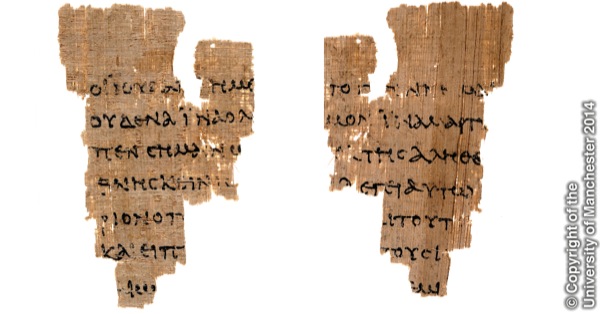 ΟΙ ΙΟΥΔΑΙ ΗΜΕ
ΟΥΔΕΝΑ ΙΝΑ Ο Λ
ΠΕΝ ϹΗΜΑΙΝΩ
ΘΝΗϹΚΕΙΝ
ΡΙΟΝ Ο Π
ΚΑΙ ΕΙΠ
ΤΟ
ΜΟΝ ΙΝΑ ΜΑΡΤΥ
ΤΗϹ ΑΛΗΘΕ
ΛΕΓΕΙ ΑΥΤΩ
ΤΟΥΤ
ΤΟΥϹ Ι
© Copyright of the
University of Manchester 2014